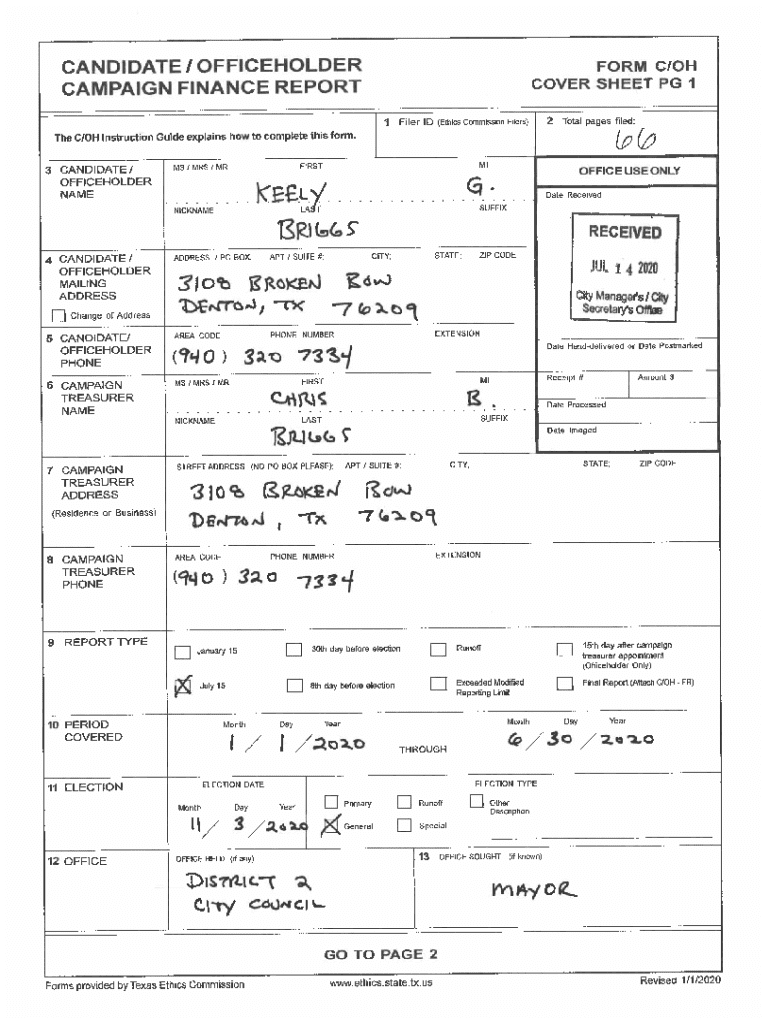 CANDIDATE / OFFICEHOLDER
CAMPAIGN FINANCE REPORT
FORM C/OH
COVER SHEET PG 1
The C/OH Instruction Guide explains how to complete this form.
1 Filer ID (Ethics Commission Filers)
2 Total pages filed:
66
3 CANDIDATE / OFFICEHOLDER NAME
MS / MRS / MR FIRST MI
KEELY G.
NICKNAME LAST SUFFIX
BRIGGS
OFFICE USE ONLY
Date Received
RECEIVED
JUL 14 2020
City Manager's / City
Secretary's Office
4 CANDIDATE / OFFICEHOLDER MAILING ADDRESS
Change of Address
ADDRESS / PO BOX; APT / SUITE #; CITY; STATE; ZIP CODE
3108 BROKEN BOW
DENTON, TX 76209
5 CANDIDATE/ OFFICEHOLDER PHONE
AREA CODE PHONE NUMBER EXTENSION
(940) 320 7334
Date Hand-delivered or Date Postmarked
Receipt # Amount $
Date Processed
Date Imaged
6 CAMPAIGN TREASURER NAME
MS / MRS / MR FIRST MI
CHRIS B.
NICKNAME LAST SUFFIX
BRIGGS
7 CAMPAIGN TREASURER ADDRESS
(Residence or Business)
STREET ADDRESS (NO PO BOX PLEASE); APT / SUITE #; CITY; STATE; ZIP CODE
3108 BROKEN BOW
DENTON, TX 76209
8 CAMPAIGN TREASURER PHONE
AREA CODE PHONE NUMBER EXTENSION
(940) 320 7334
9 REPORT TYPE
January 15 30th day before election Runoff 15th day after campaign treasurer appointment (Officeholder Only)
X July 15 8th day before election Exceeded Modified Reporting Limit Final Report (Attach C/OH - FR)
10 PERIOD COVERED
Month Day Year Month Day Year
1 / 1 / 2020 THROUGH 6 / 30 / 2020
11 ELECTION
ELECTION DATE ELECTION TYPE
Month Day Year
11 / 3 / 2020
Primary Runoff Other Description
X General Special
12 OFFICE
OFFICE HELD (if any)
DISTRICT 2
CITY COUNCIL
13 OFFICE SOUGHT (if known)
MAYOR
GO TO PAGE 2
Forms provided by Texas Ethics Commission www.ethics.state.tx.us Revised 1/1/2020